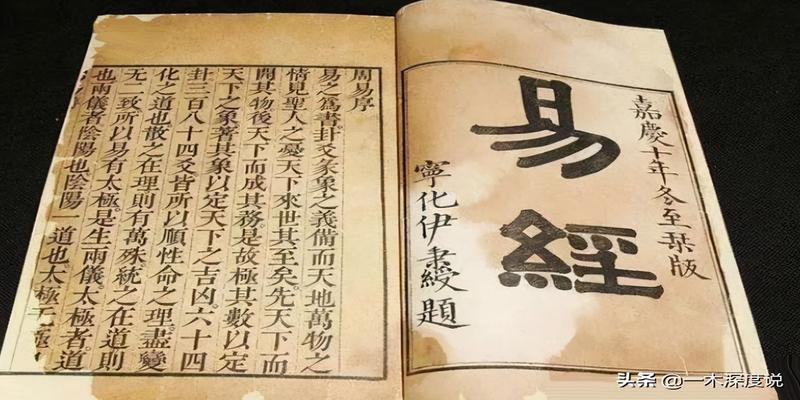 嘉慶十年冬至栞版
易經
寧化伊秉綬題
周易序
易之爲書。卦爻彖象之義備而天地萬物之
情見聖人之憂天下來世其至矣。先天下而
開其物。後天下而成其務。是故極其數以定
天下之象著其象以定天下之吉凶。六十四
卦三百八十四爻皆所以順性命之理。盡變
化之道也散之在理則有萬殊統之在道則
無二致。所以易有太極。是生兩儀。太極者。道
也兩儀者陰陽也陰陽一道也太極无極
头条 @一木深度说